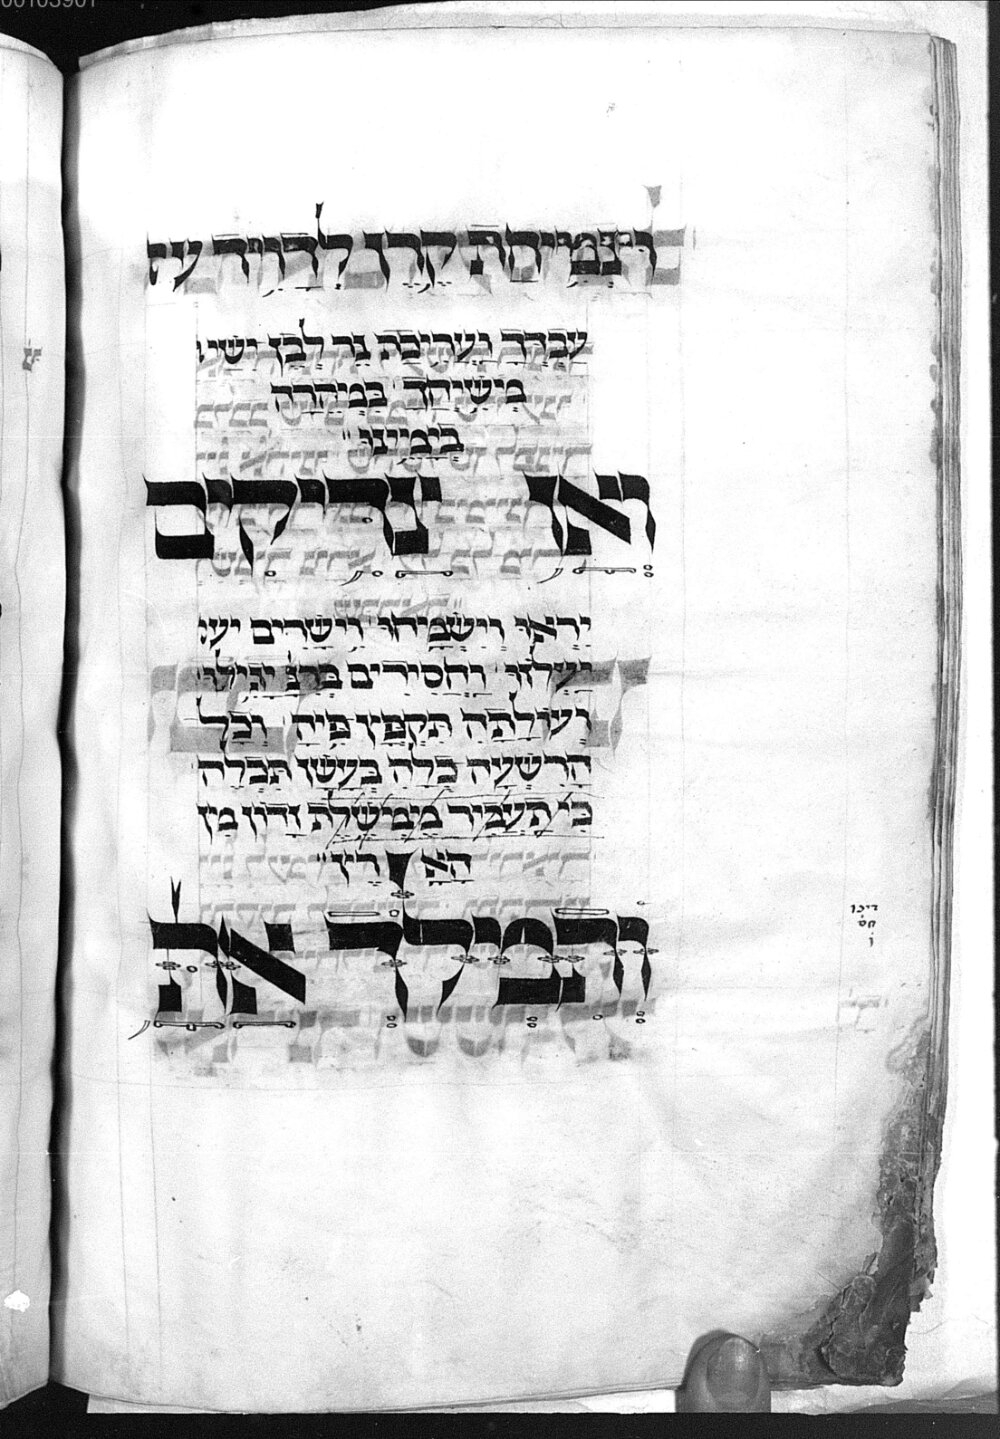 00103901
וצמיחת קרן לדויד
עבדך ועריכת נר לבן ישי
משיחך במהרה
בימינו
ואז צדיקים
יראו וישמחו וישרים יע
יעלזו וחסידים ברנה יגילו
ועולתה תקפץ פיה וכל
הרשעה כלה בעשן תכלה
כי תעביר ממשלת זדון מן
הארץ
ותמלך אתה